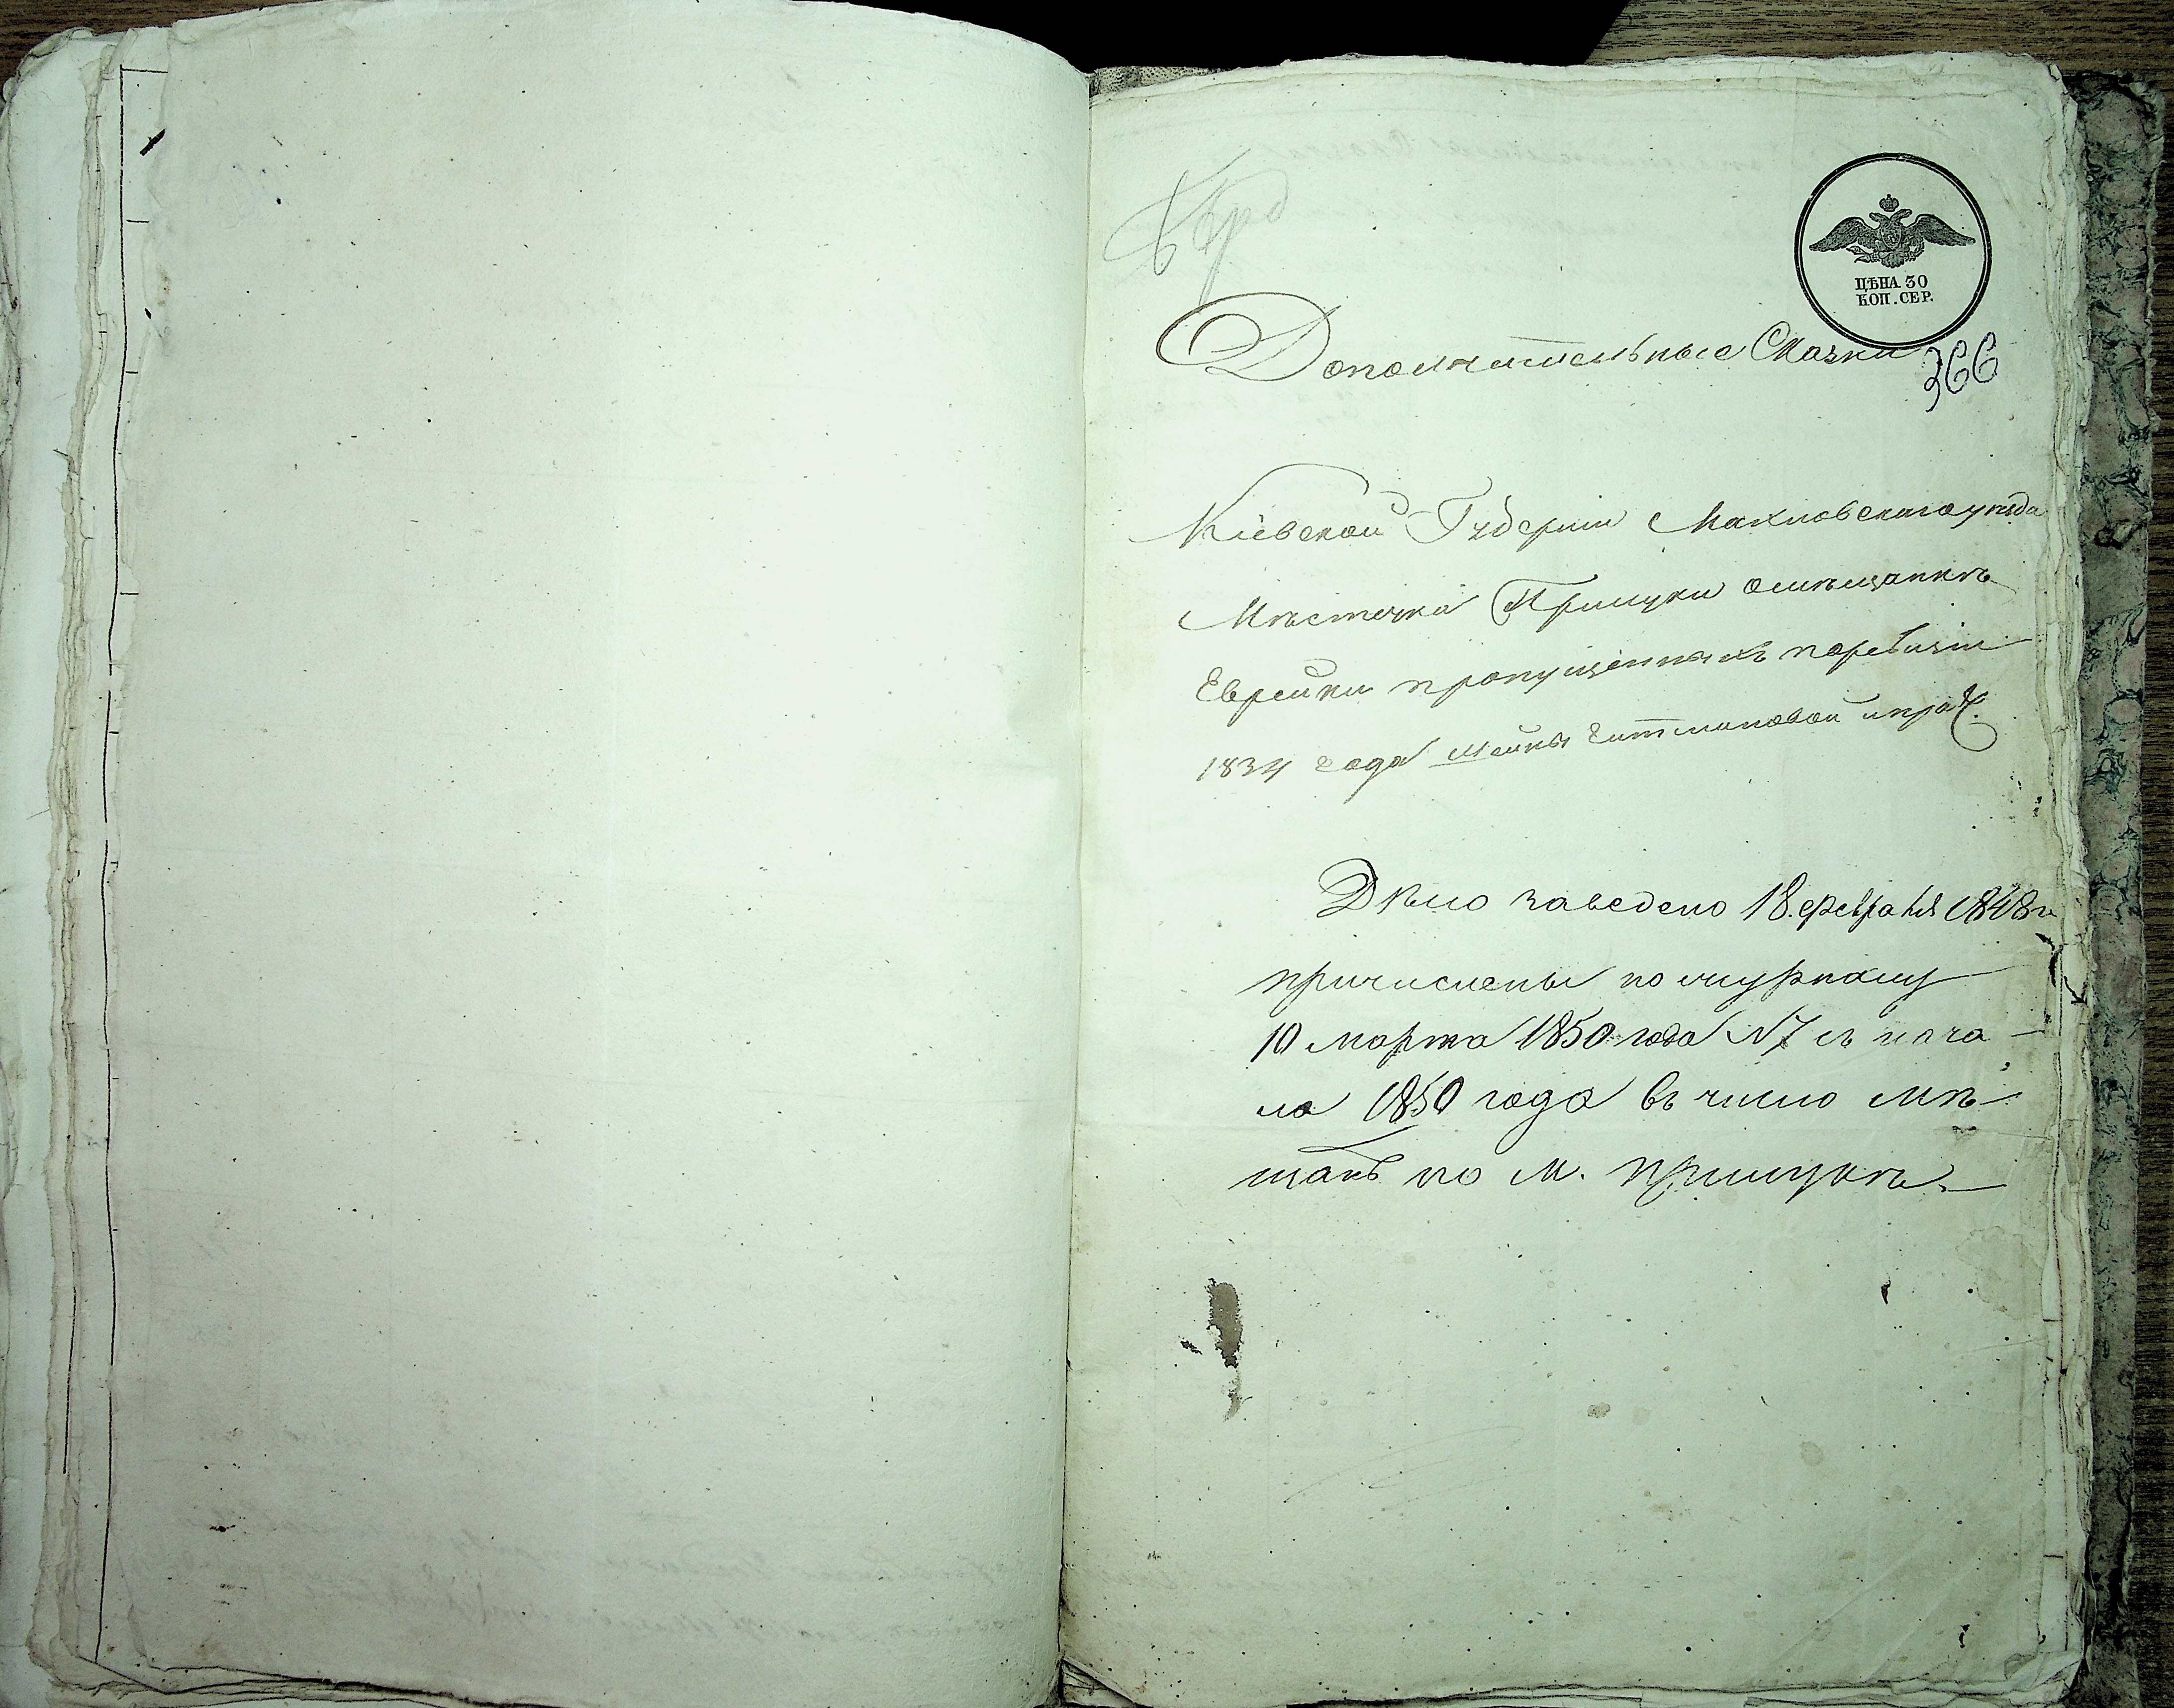 Берд
ЦѢНА 30
КОП. СЕР.
Дополнительные Сказки
366
Кіевской Губерніи Махновскаго уѣзда
Мѣстечка Прилуки о мѣщанкѣ
Еврейки пропущенныхъ по ревизіи
1834 года Гитмановой и проч.
Дѣло заведено 18 февраля 1848 г.
причислены по журналу
10 марта 1850 года N 7 съ нача-
ла 1850 года въ число мѣ-
щанъ по м. Прилукѣ.